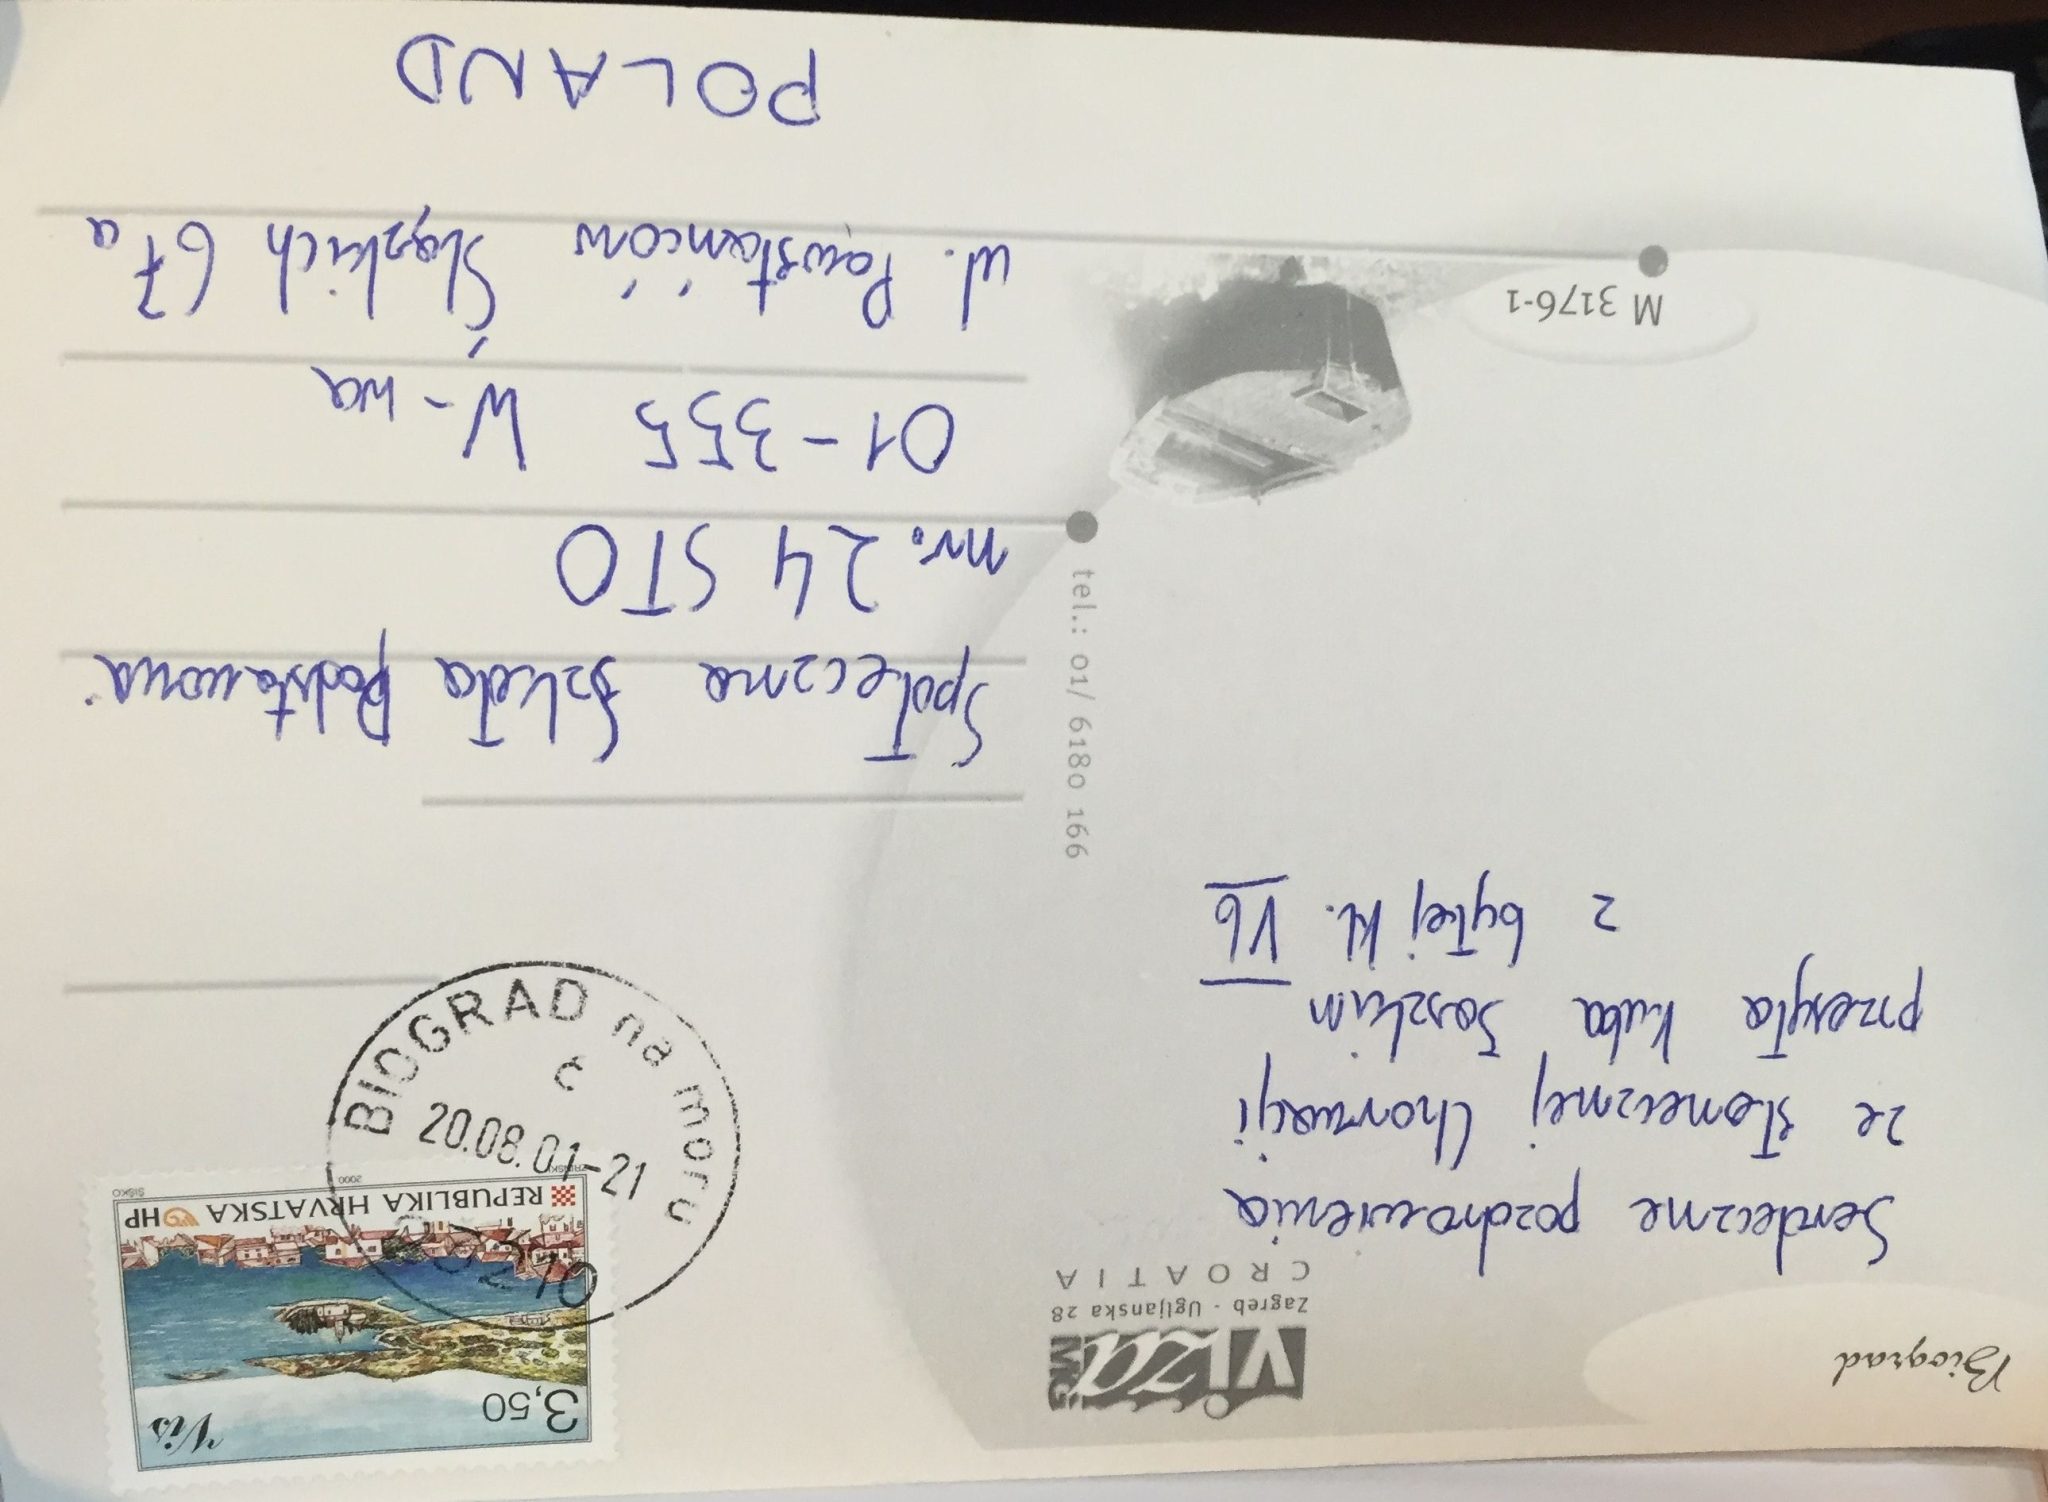 Biograd
VIZA MG
Zagreb - Ugljanska 28
CROATIA
Serdeczne pozdrowienia
ze słonecznej Chorwacji
przesyła Kuba
z byłej kl. VIb
tel.: 01/ 6180 166
M 3176-1
3,50 Vis
REPUBLIKA HRVATSKA HP
2000
ŠIŠKO
BIOGRAD na moru
č
20.08.01-21
23210
Społeczna Szkoła Podstawowa
nr. 24 STO
01-355 W-wa
ul. Powstańców Śląskich 67a
POLAND